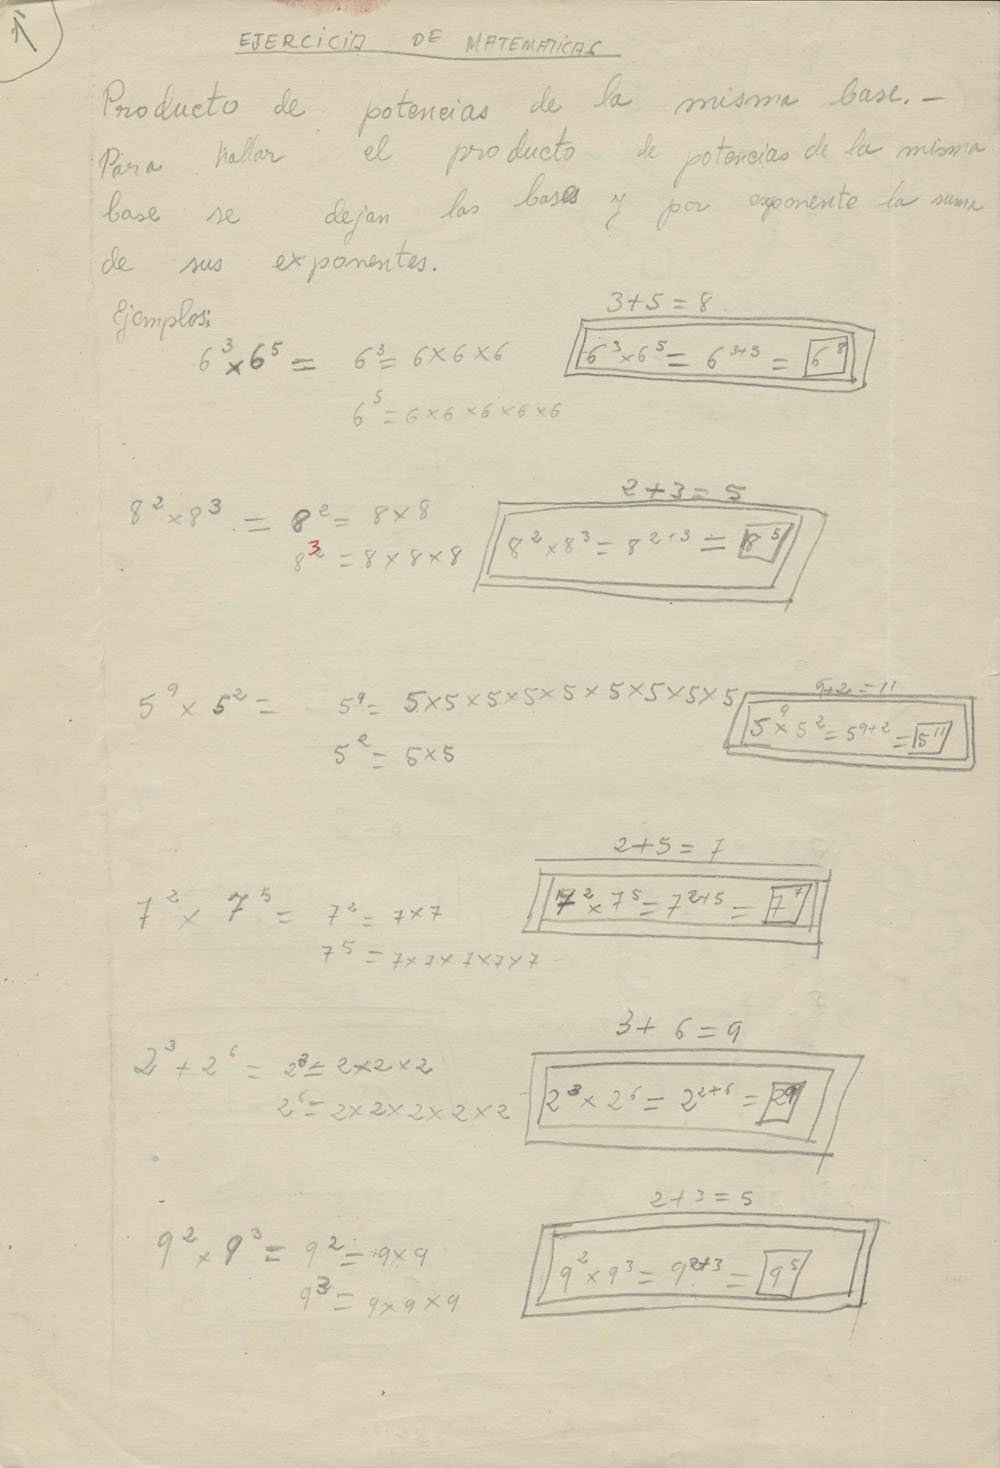 EJERCICIO DE MATEMATICAS
Producto de potencias de la misma base.—
Para hallar el producto de potencias de la misma
base se dejan las bases y por exponente la suma
de sus exponentes.
Ejemplos:
3+5=8
6³×6⁵= 6³=6×6×6 6³×6⁵=6³⁺⁵=6⁸
6⁵=6×6×6×6×6
2+3=5
8²×8³= 8²=8×8 8²×8³=8²⁺³=8⁵
8³=8×8×8
9+2=11
5⁹×5²= 5⁹=5×5×5×5×5×5×5×5×5 5⁹×5²=5⁹⁺²=5¹¹
5²=5×5
2+5=7
7²×7⁵= 7²=7×7 7²×7⁵=7²⁺⁵=7⁷
7⁵=7×7×7×7×7
3+6=9
2³+2⁶= 2³=2×2×2 2³×2⁶=2²⁺⁶=2⁹
2⁶=2×2×2×2×2
2+3=5
9²×9³= 9²=9×9 9²×9³=9²⁺³=9⁵
9³=9×9×9